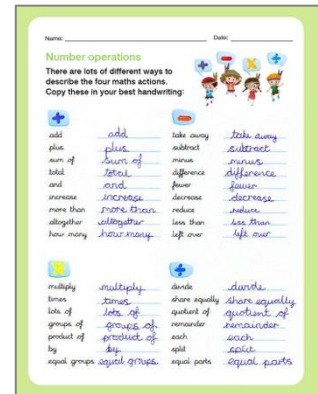 Name:
Date:
Number operations
There are lots of different ways to
describe the four maths actions.
Copy these in your best handwriting:
+ − × ÷
+
add add
plus plus
sum of sum of
total total
and and
increase increase
more than more than
altogether altogether
how many how many
−
take away take away
subtract subtract
minus minus
difference difference
fewer fewer
decrease decrease
reduce reduce
less than less than
left over left over
×
multiply multiply
times times
lots of lots of
groups of groups of
product of product of
by by
equal groups equal groups
÷
divide divide
share equally share equally
quotient of quotient of
remainder remainder
each each
split split
equal parts equal parts